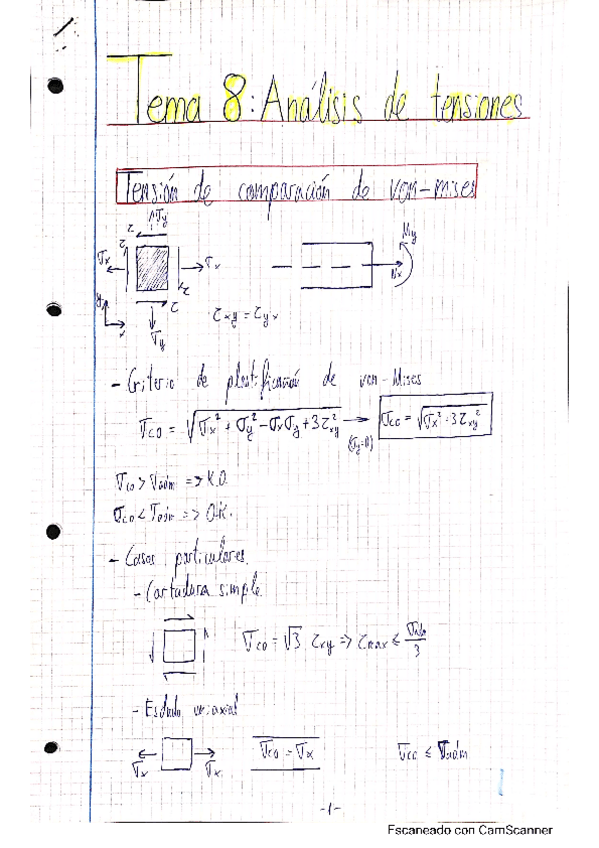 Tema 8: Análisis de tensiones
Tensión de comparación de von-mises
σy
τ
τ
σx
σx
τ
τ
y
x
σy
τxy = τyx
My
Nx
- Criterio de plastificación de von-Mises
σco = √(σx² + σy² - σxσy + 3τxy²) → (σy=0) σco = √(σx² + 3τxy²)
σco > σadm => K.O.
σco < σadm => O.K.
- Casos particulares
- Cortadura simple
σco = √3 τxy => τmax ≤ σadm/3
- Estado uniaxial
σx
σx
σco = σx
σco ≤ σadm
-1-
Escaneado con CamScanner